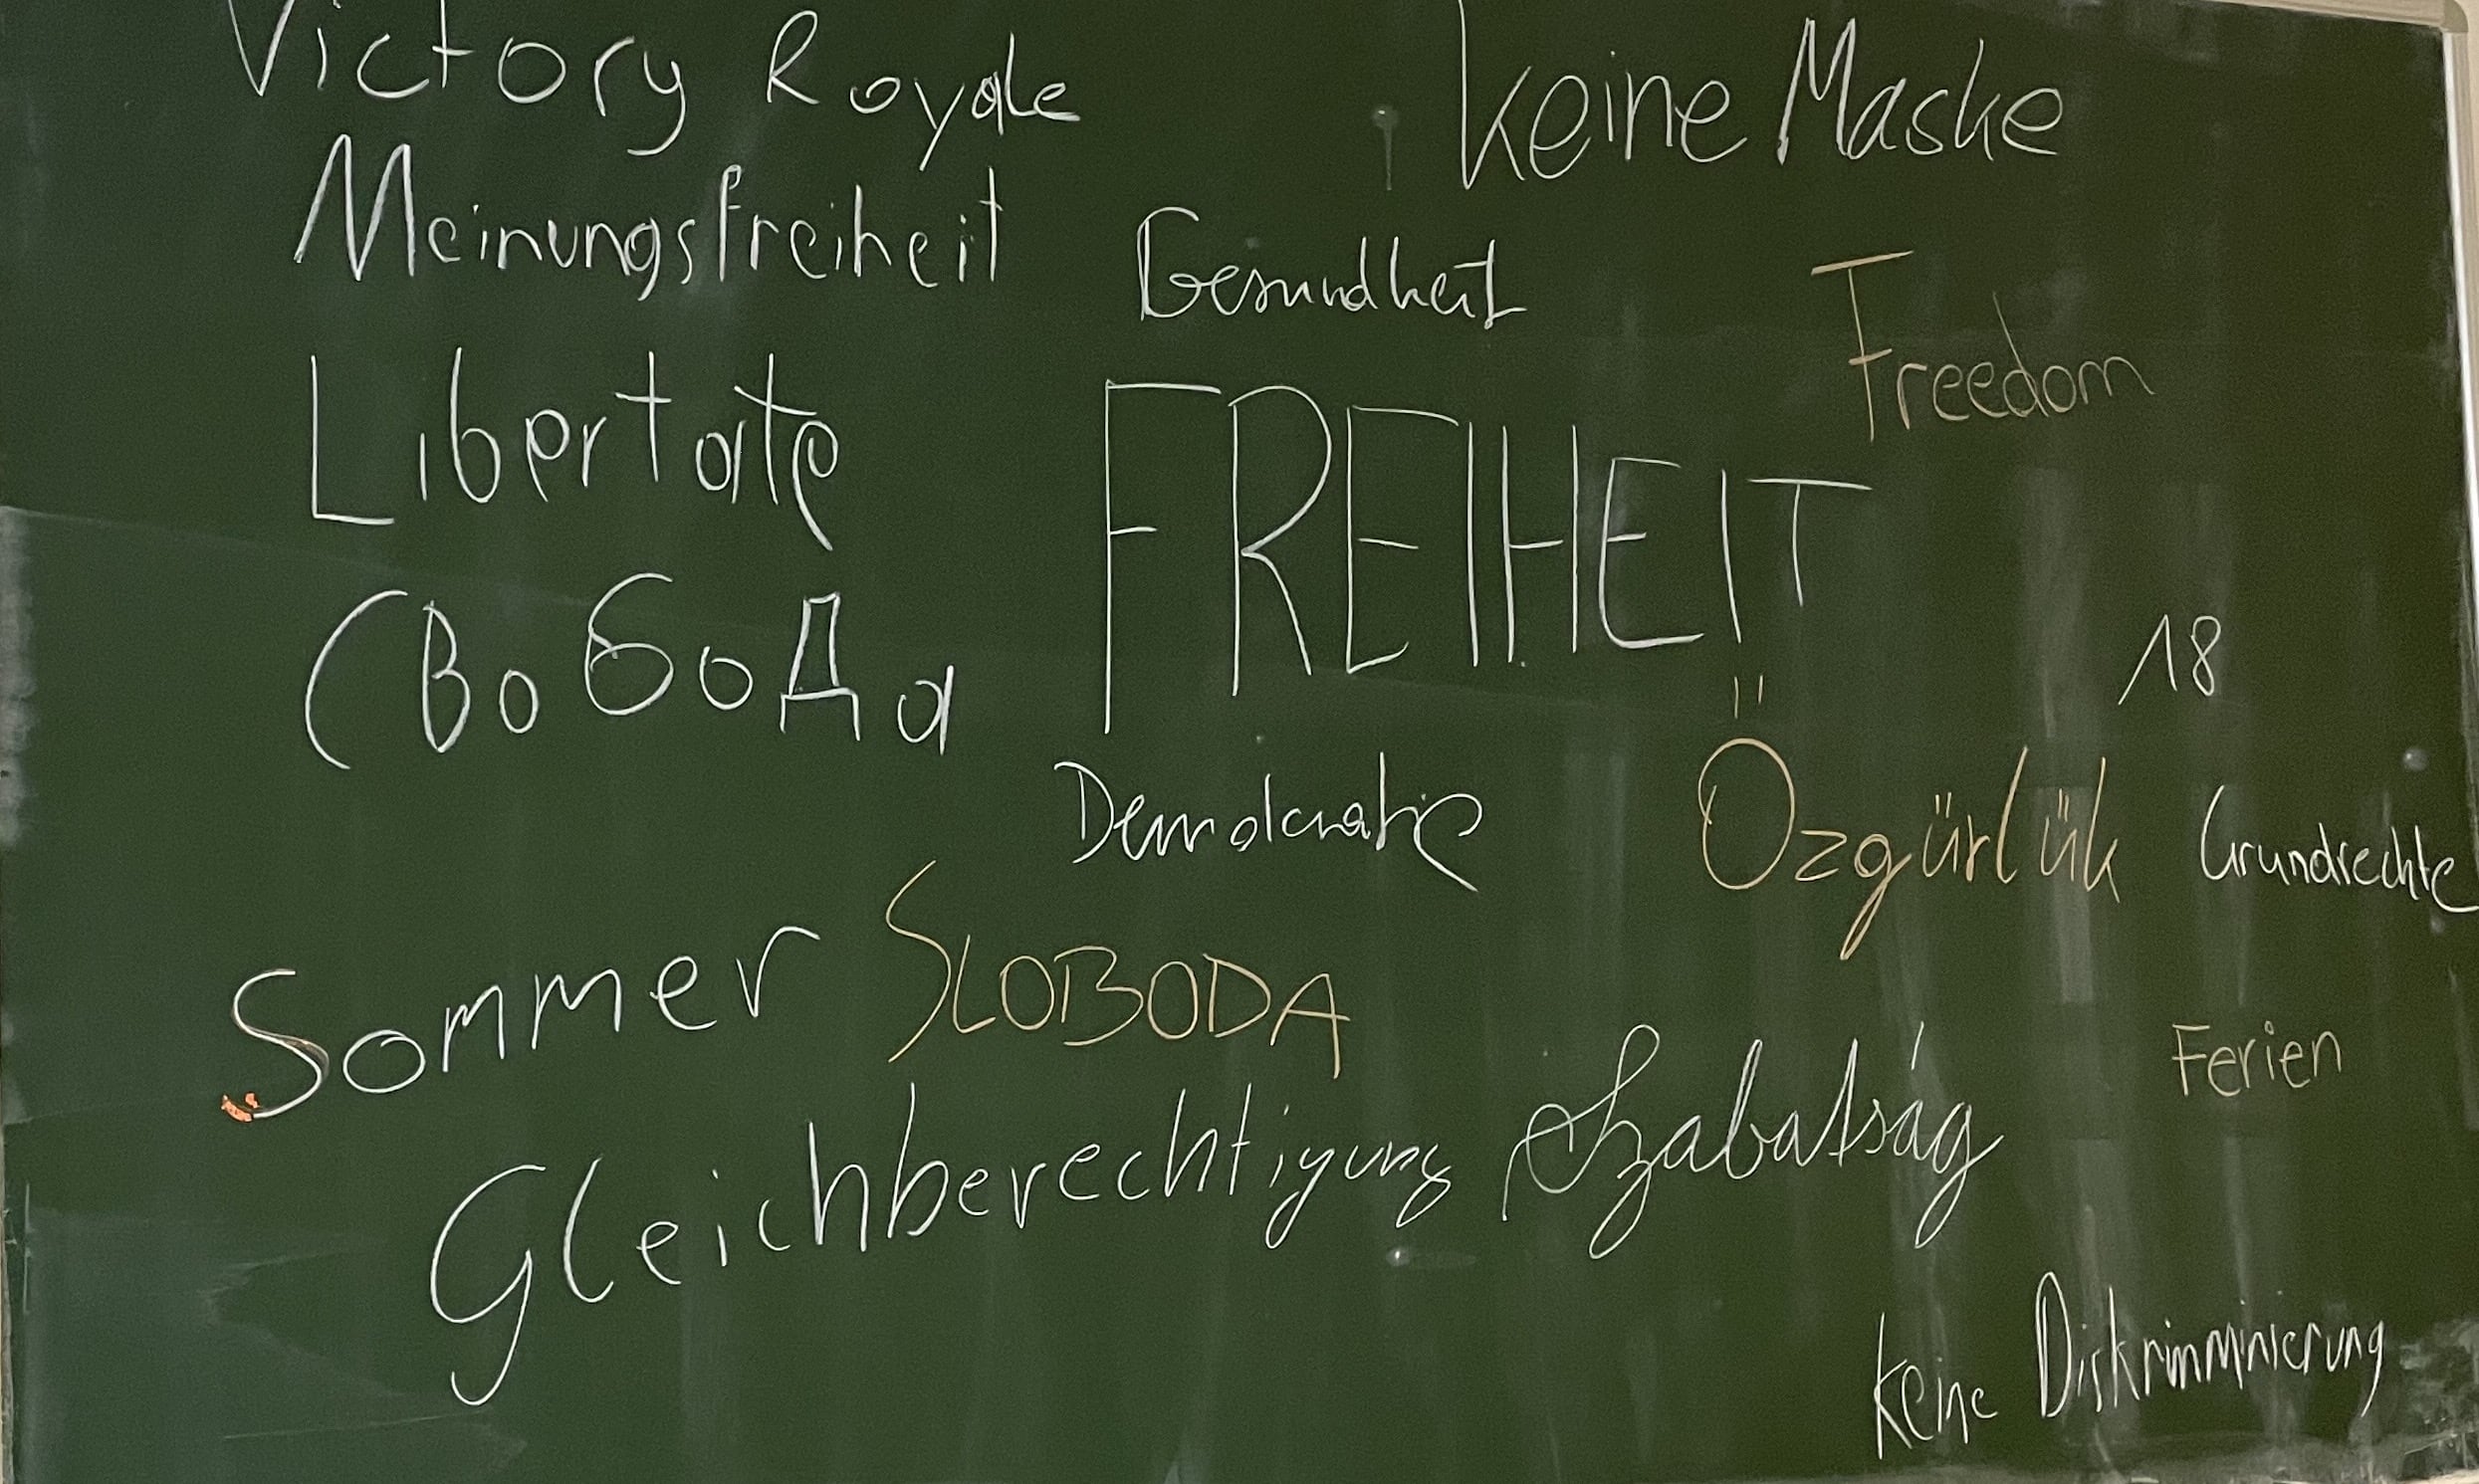 Victory Royale
keine Maske
Meinungsfreiheit
Gesundheit
Freedom
Libertate
FREIHEIT
СВобоДа
18
Demokratie
Özgürlük
Grundrechte
Sommer
SLOBODA
Ferien
Gleichberechtigung
Szabatság
keine Diskrimminierung